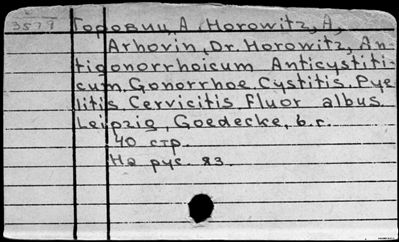 3579 Горовиц, А. Horowitz, A,
Arhovin, Dr. Horowitz, An-
tigonorrhoicum Anticystiti-
cum. Gonorrhoe. Cystitis. Pye
litis Cervicitis. Fluor albus.
Leipzig, Goedecke, б.г.
40 стр.
На рус. яз.